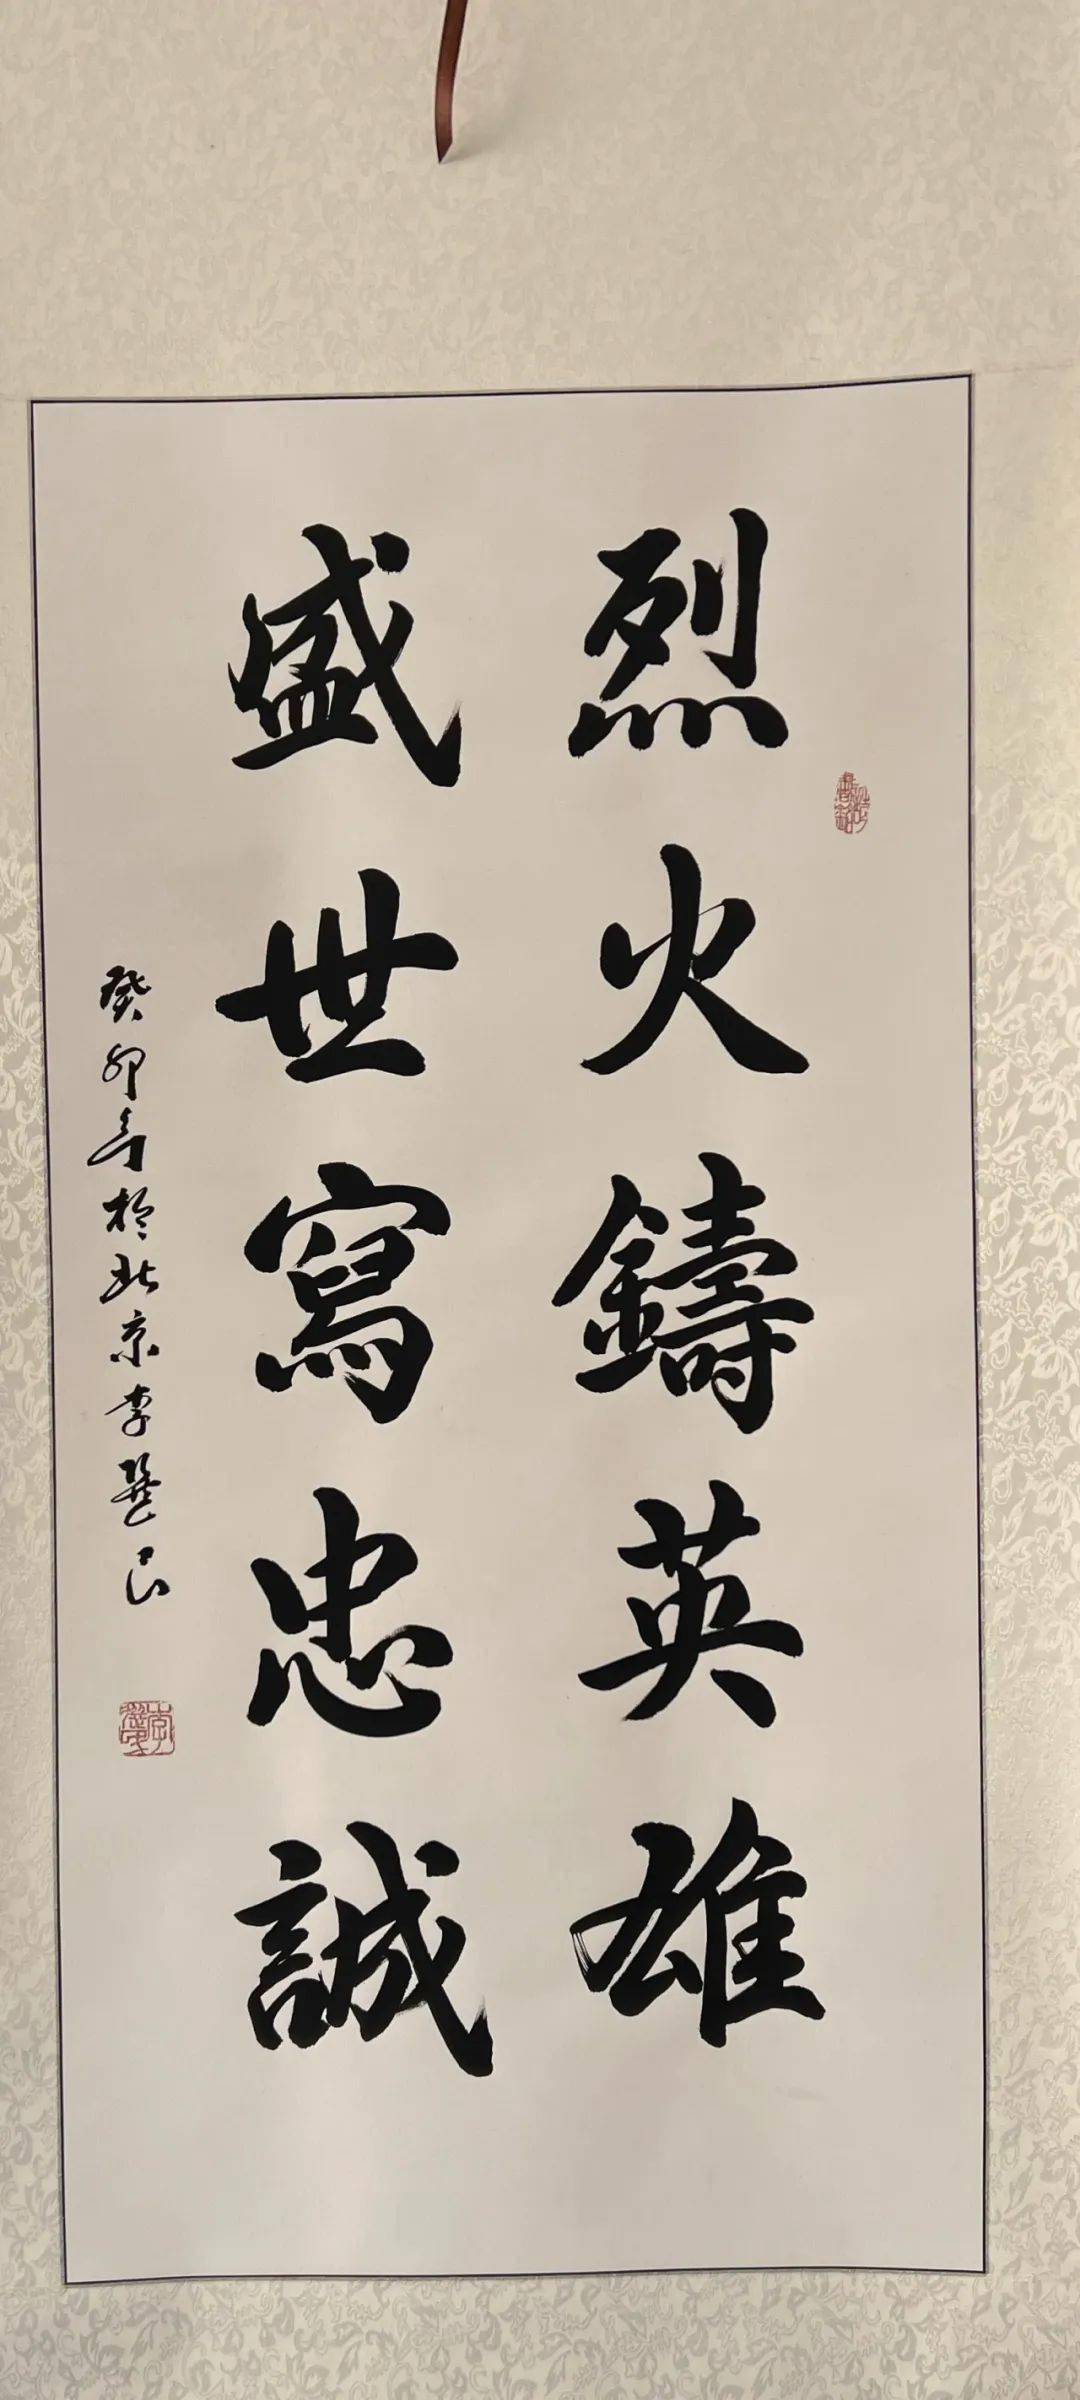 烈火鑄英雄
盛世寫忠誠
癸卯年於北京李